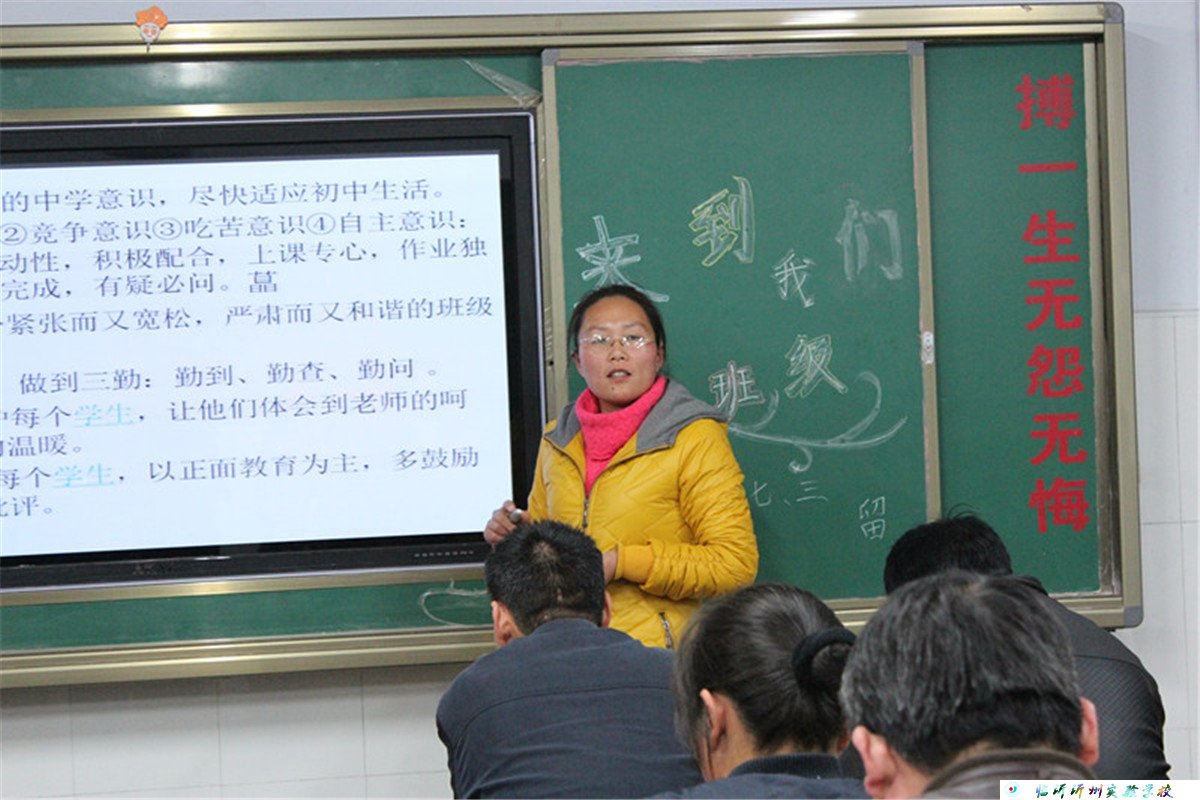 的中学意识，尽快适应初中生活。
②竞争意识③吃苦意识④自主意识：
动性，积极配合，上课专心，作业独
完成，有疑必问。
紧张而又宽松，严肃而又和谐的班级
做到三勤：勤到、勤查、勤问。
每个学生，让他们体会到老师的呵
温暖。
每个学生，以正面教育为主，多鼓励
批评。
来到我们
班级
七、三 留
搏一生无怨无悔
临沂沂州实验学校